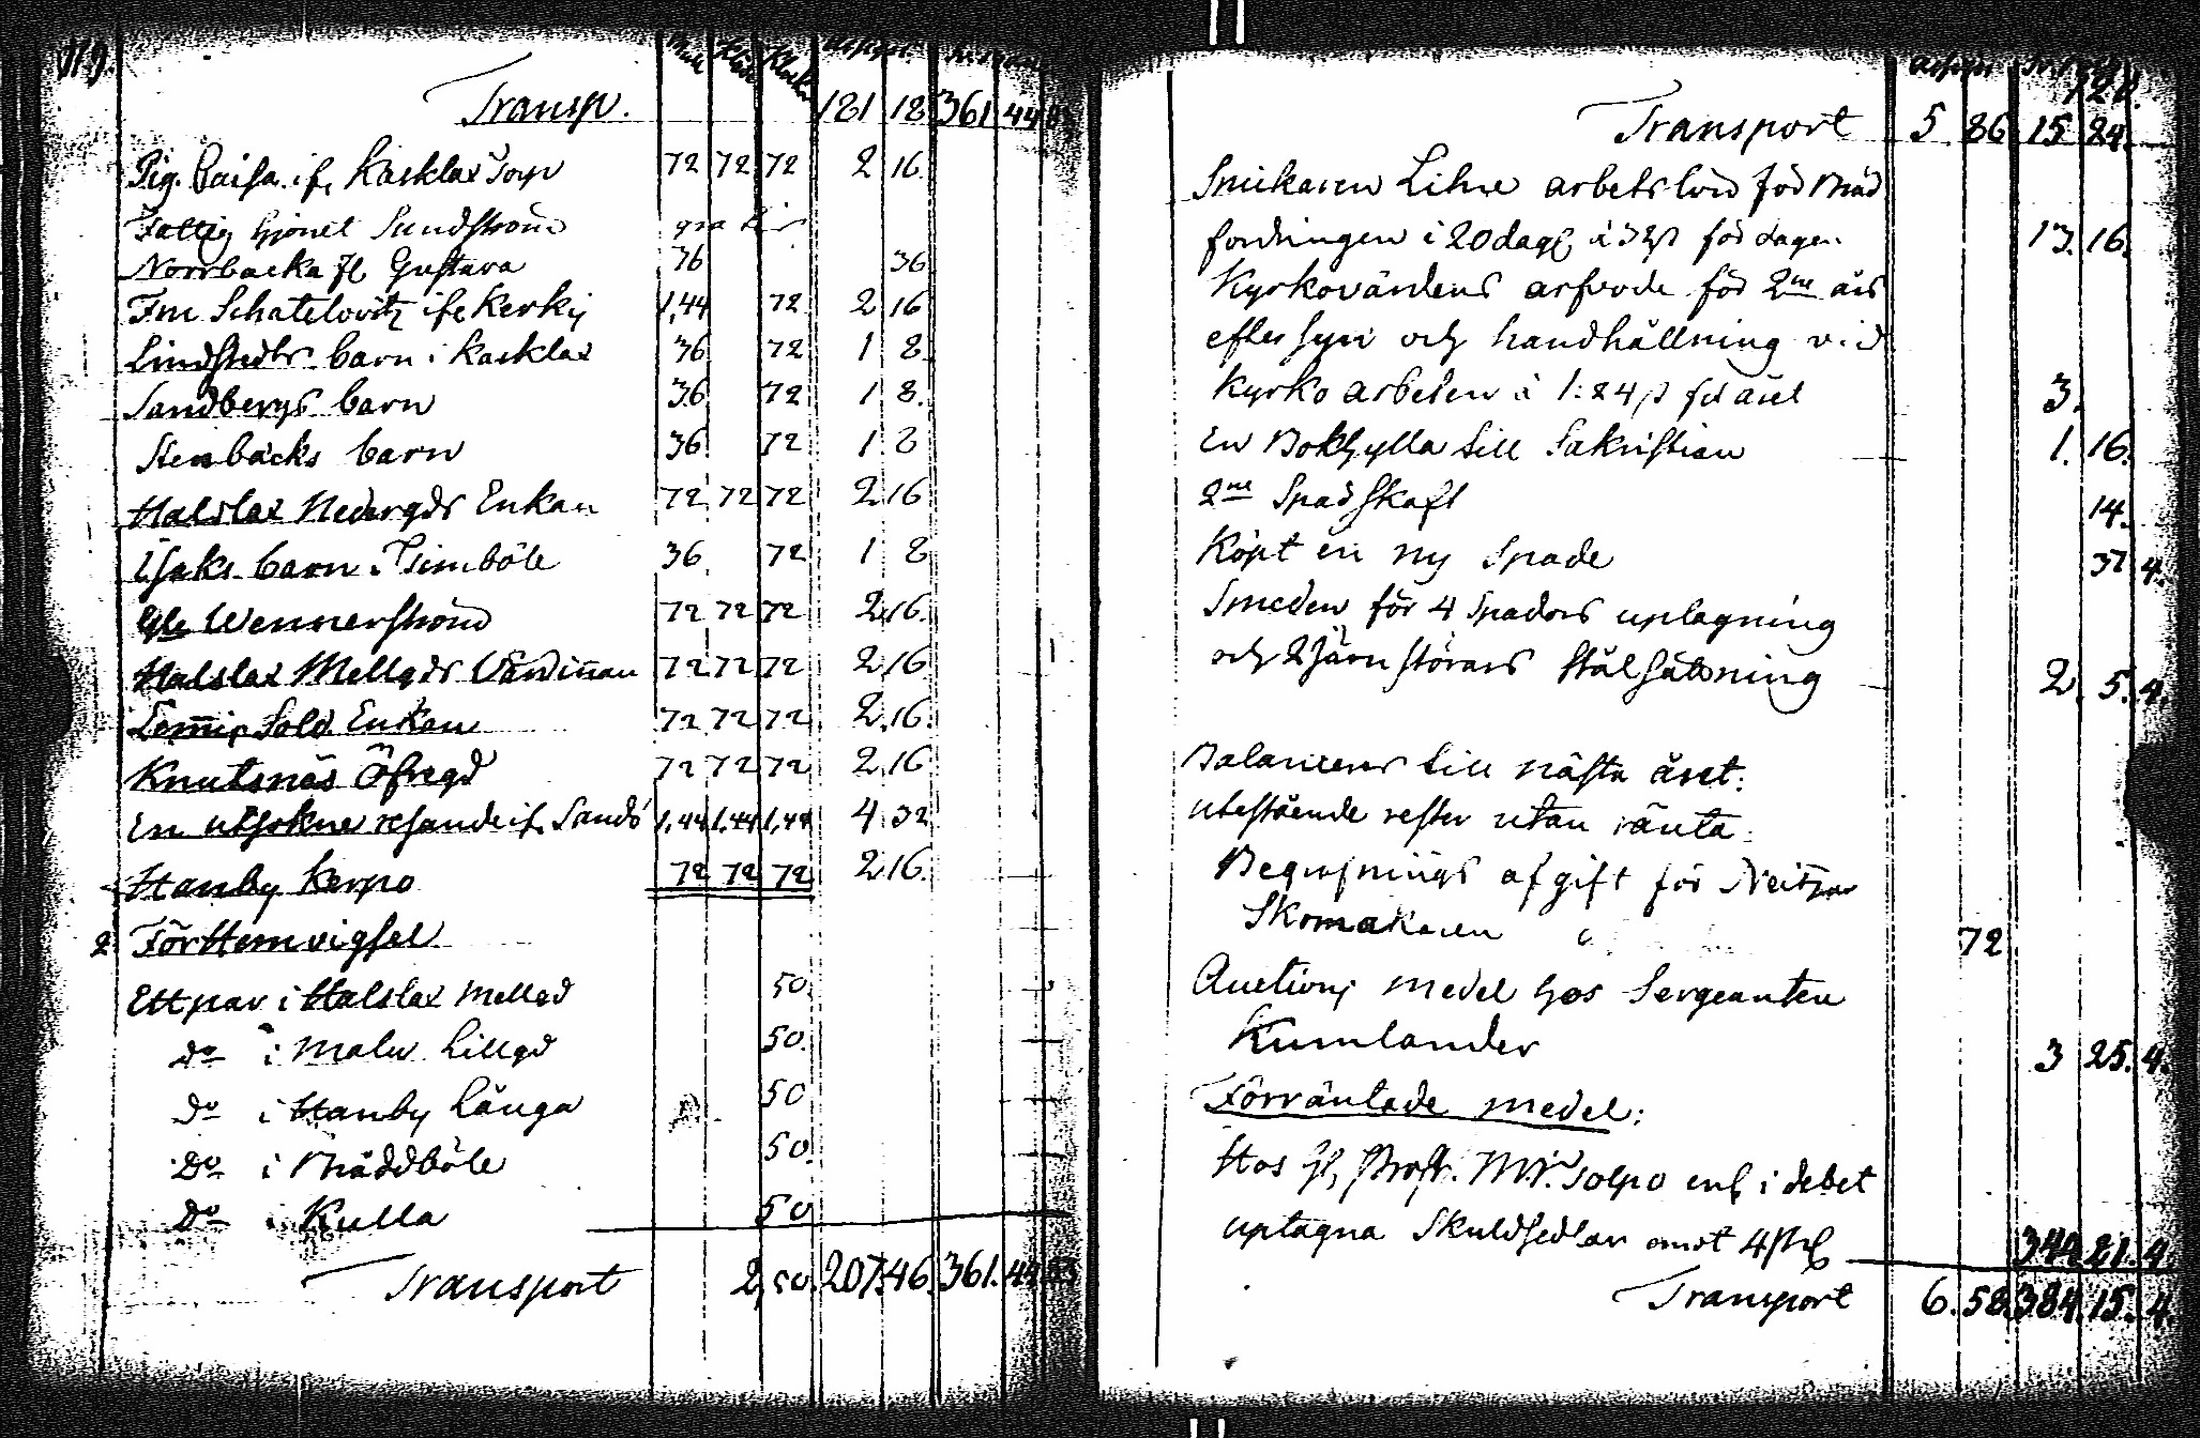 119.
Transp. 181 18 361. 44
Pig. Caisa if. Kasklax Torp 72 72 72 2 16.
Fattig hjonet Sundström gratis
Norrbacka fl Gustava 36 36
Fru Schatelovitz ifr Kerkij 1,44 72 2 16
Lindstedts barn i Kasklax 36 72 1 8.
Sandbergs barn 36 72 1 8.
Stenbäcks barn 36 72 1 8
Halslax Nedergds Enkan 72 72 72 2 16
Isaks barn i Simböle 36 72 1 8
Wennerström 72 72 72 2 16.
Halslax Mellgds Värdinnan 72 72 72 2 16
Sold. Enkan 72 72 72 2. 16.
Knutsnäs Öfregd 72 72 72 2 16
En utsokne resande if. Sandö 1,44 1,44 1,44 4 32
Hanby Kerpo 72 72 72 2 16.
2 För Hemvigsel
Ett par i Halslax Mellgd 50.
Do i Malm Lillgd 50.
Do i Hanby Långa 50
Do i Bräddböle 50.
Do i Kulla 50
Transport 2,50. 207. 46. 361. 44
120.
Transport 5 86 15 24.
Snickaren Lihre arbetslön för bräd
fordringen i 20 dagr à 32 s för dagen 13. 16.
Kyrkovärdens arfvode för 2ne års
eftersyn och handhållning vid
Kyrko arbeten à 1:24 s för året 3.
En Bokhylla till Sakristian 1. 16.
2ne Spadskaft 14.
Köpt en ny Spade 37 4.
Smeden för 4 Spadors uplagning
och 2 järnstörars stålsättning 2. 5. 4.
Balanceras till nästa året:
utestående rester utan ränta:
Begrafnings afgift för
Skomakaren 72
Auctions medel hos Sergeanten
Kumlander 3 25. 4.
Förräntade medel:
Hos Hr Prost. Tolpo enl i debet
uptagna Skuldsedlar emot 4 344. 21. 4.
Transport 6. 58. 384. 15. 4.